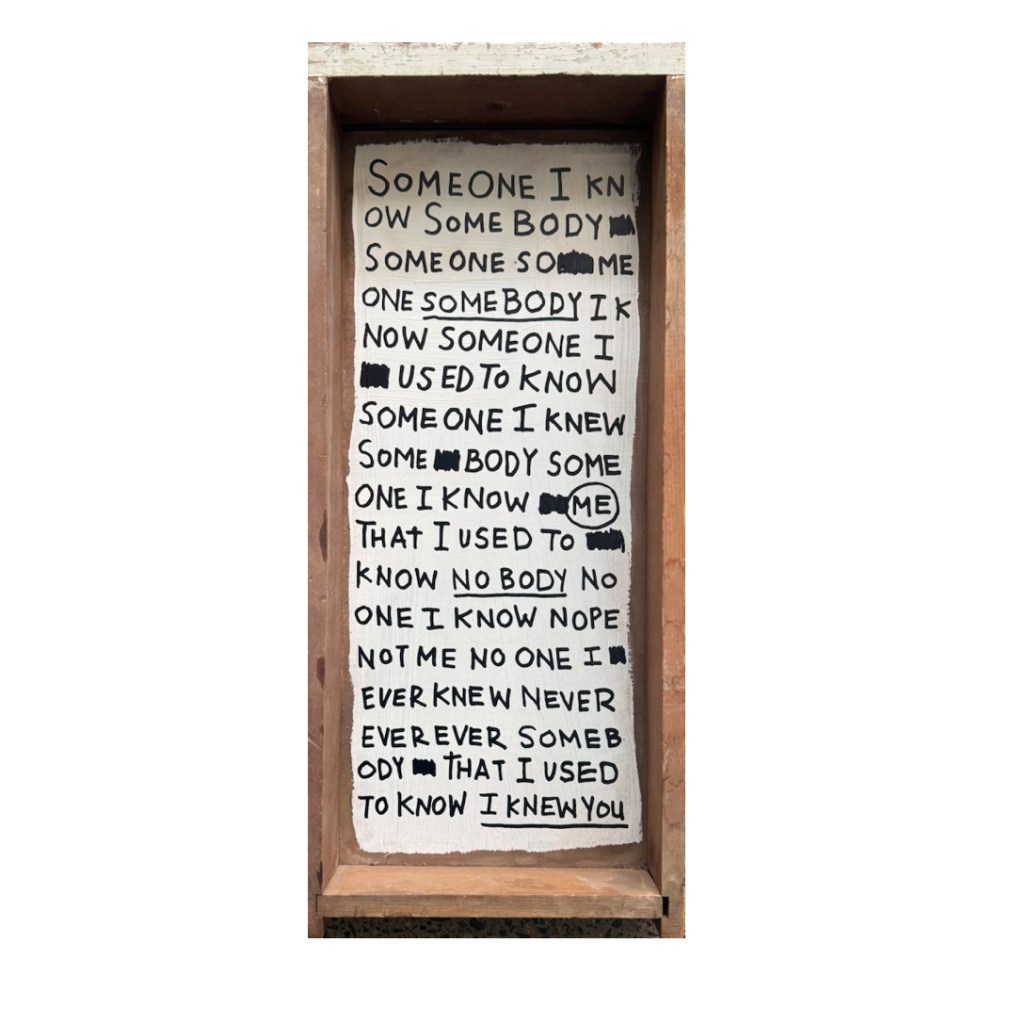 SOMEONE I KN
OW SOMEBODY
SOMEONE SO ME
ONE SOMEBODY I K
NOW SOMEONE I
USED TO KNOW
SOMEONE I KNEW
SOME BODY SOME
ONE I KNOW ME
THAT I USED TO
KNOW NO BODY NO
ONE I KNOW NOPE
NOT ME NO ONE I
EVER KNEW NEVER
EVER EVER SOMEB
ODY THAT I USED
TO KNOW I KNEW YOU